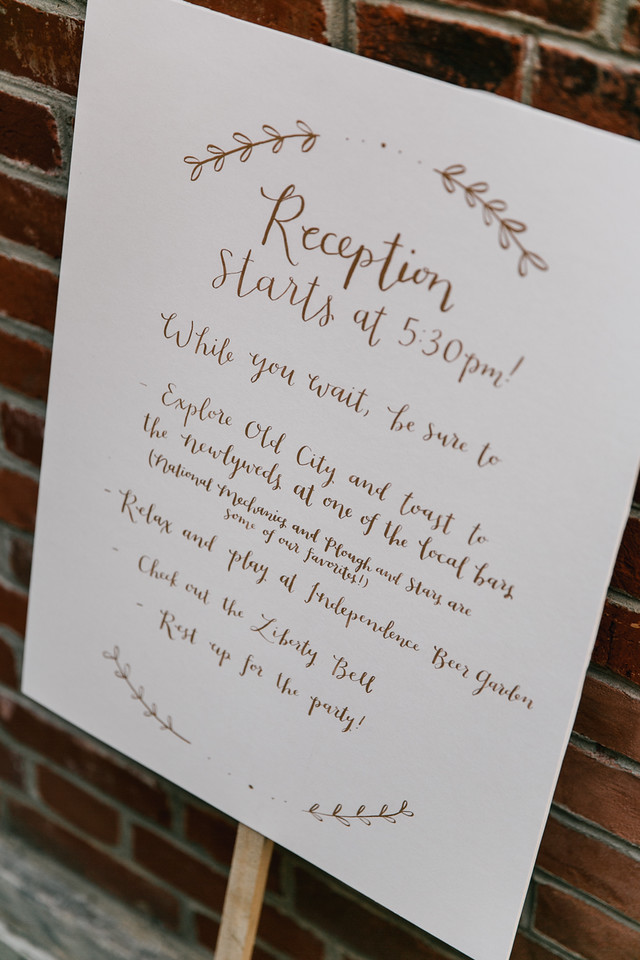 Reception
Starts at 5:30pm!
While you wait, be sure to
- Explore Old City and toast to
the newlyweds at one of the local bars
(National Mechanics and Plough and Stars are
some of our favorites!)
- Relax and play at Independence Beer Garden
- Check out the Liberty Bell
- Rest up for the party!